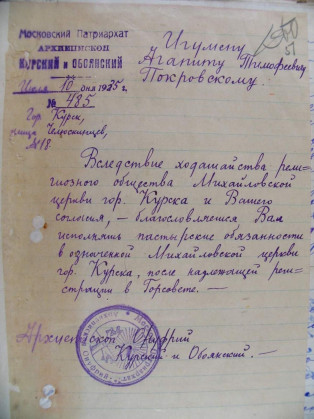 Московский Патриархат
АРХИЕПИСКОП
КУРСКИЙ и ОБОЯНСКИЙ
Июля 10 дня 1935 г.
№ 485
Гор. Курск,
улица Челюскинцев,
№ 18.
51
Игумену
Агапиту Тимофеевичу
Покровскому.
Вследствие ходатайства рели-
гиозного общества Михайловской
церкви гор. Курска и Вашего
согласия, – благословляется Вам
исполнять пастырские обязанности
в означенной Михайловской церкви
гор. Курска, после надлежащей реги-
страции в Горсовете. –
Архиепископ Онуфрий
Курский и Обоянский. –